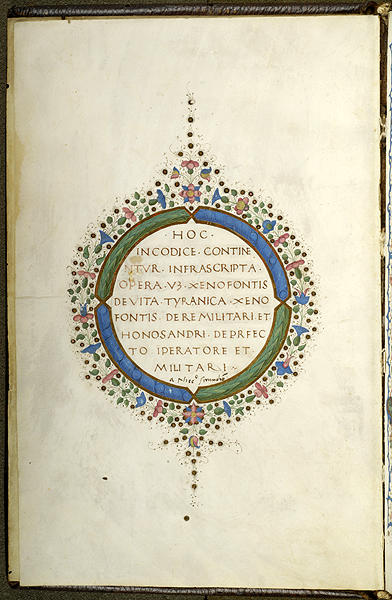 HOC·
IN CODICE· CONTINE
NTVR· INFRASCRIPTA·
OPERA· V3· XENOFONTIS
DE VITA· TYRANICA· XENO
FONTIS· DE RE MILITARI· ET
HONOSANDRI· DE PRFEC
TO IPERATORE ET
MILITARI~